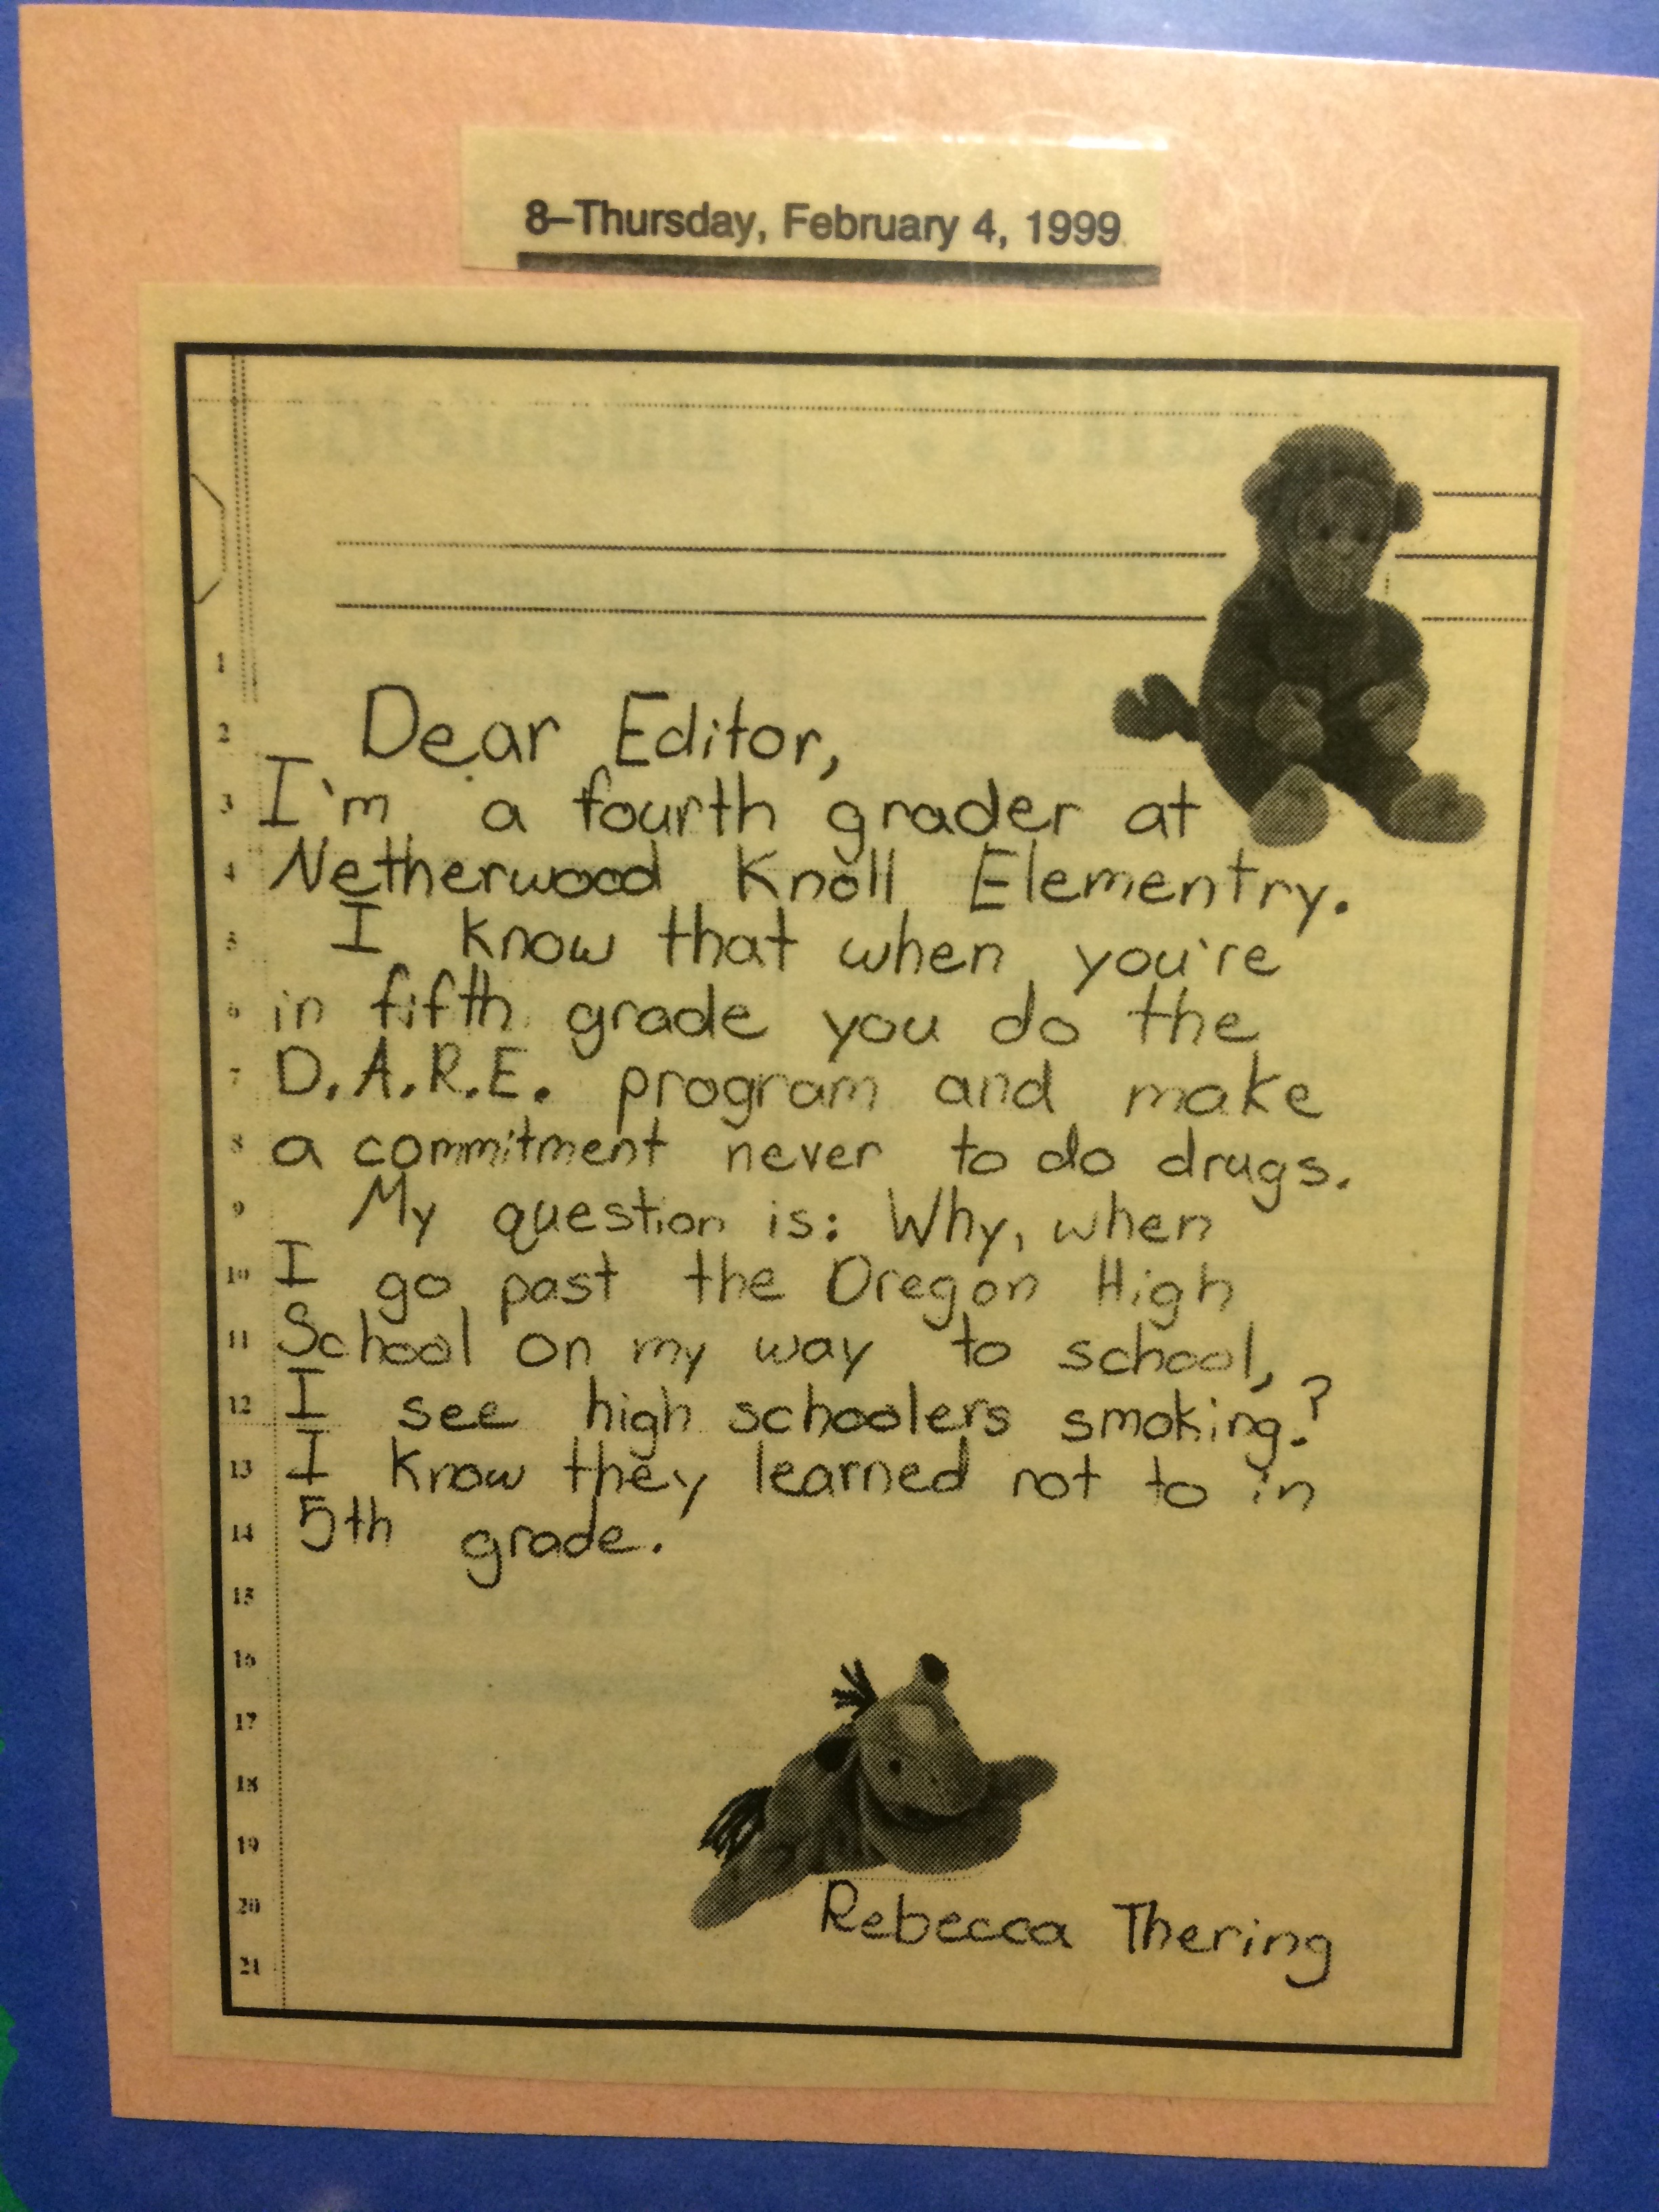 8–Thursday, February 4, 1999
1
2 Dear Editor,
3 I'm a fourth grader at
4 Netherwood Knoll Elementry.
5 I know that when you're
6 in fifth grade you do the
7 D.A.R.E. program and make
8 a commitment never to do drugs.
9 My question is: Why, when
10 I go past the Oregon High
11 School on my way to school,
12 I see high schoolers smoking?
13 I know they learned not to in
14 5th grade.
15
16
17
18
19
20 Rebecca Thering
21